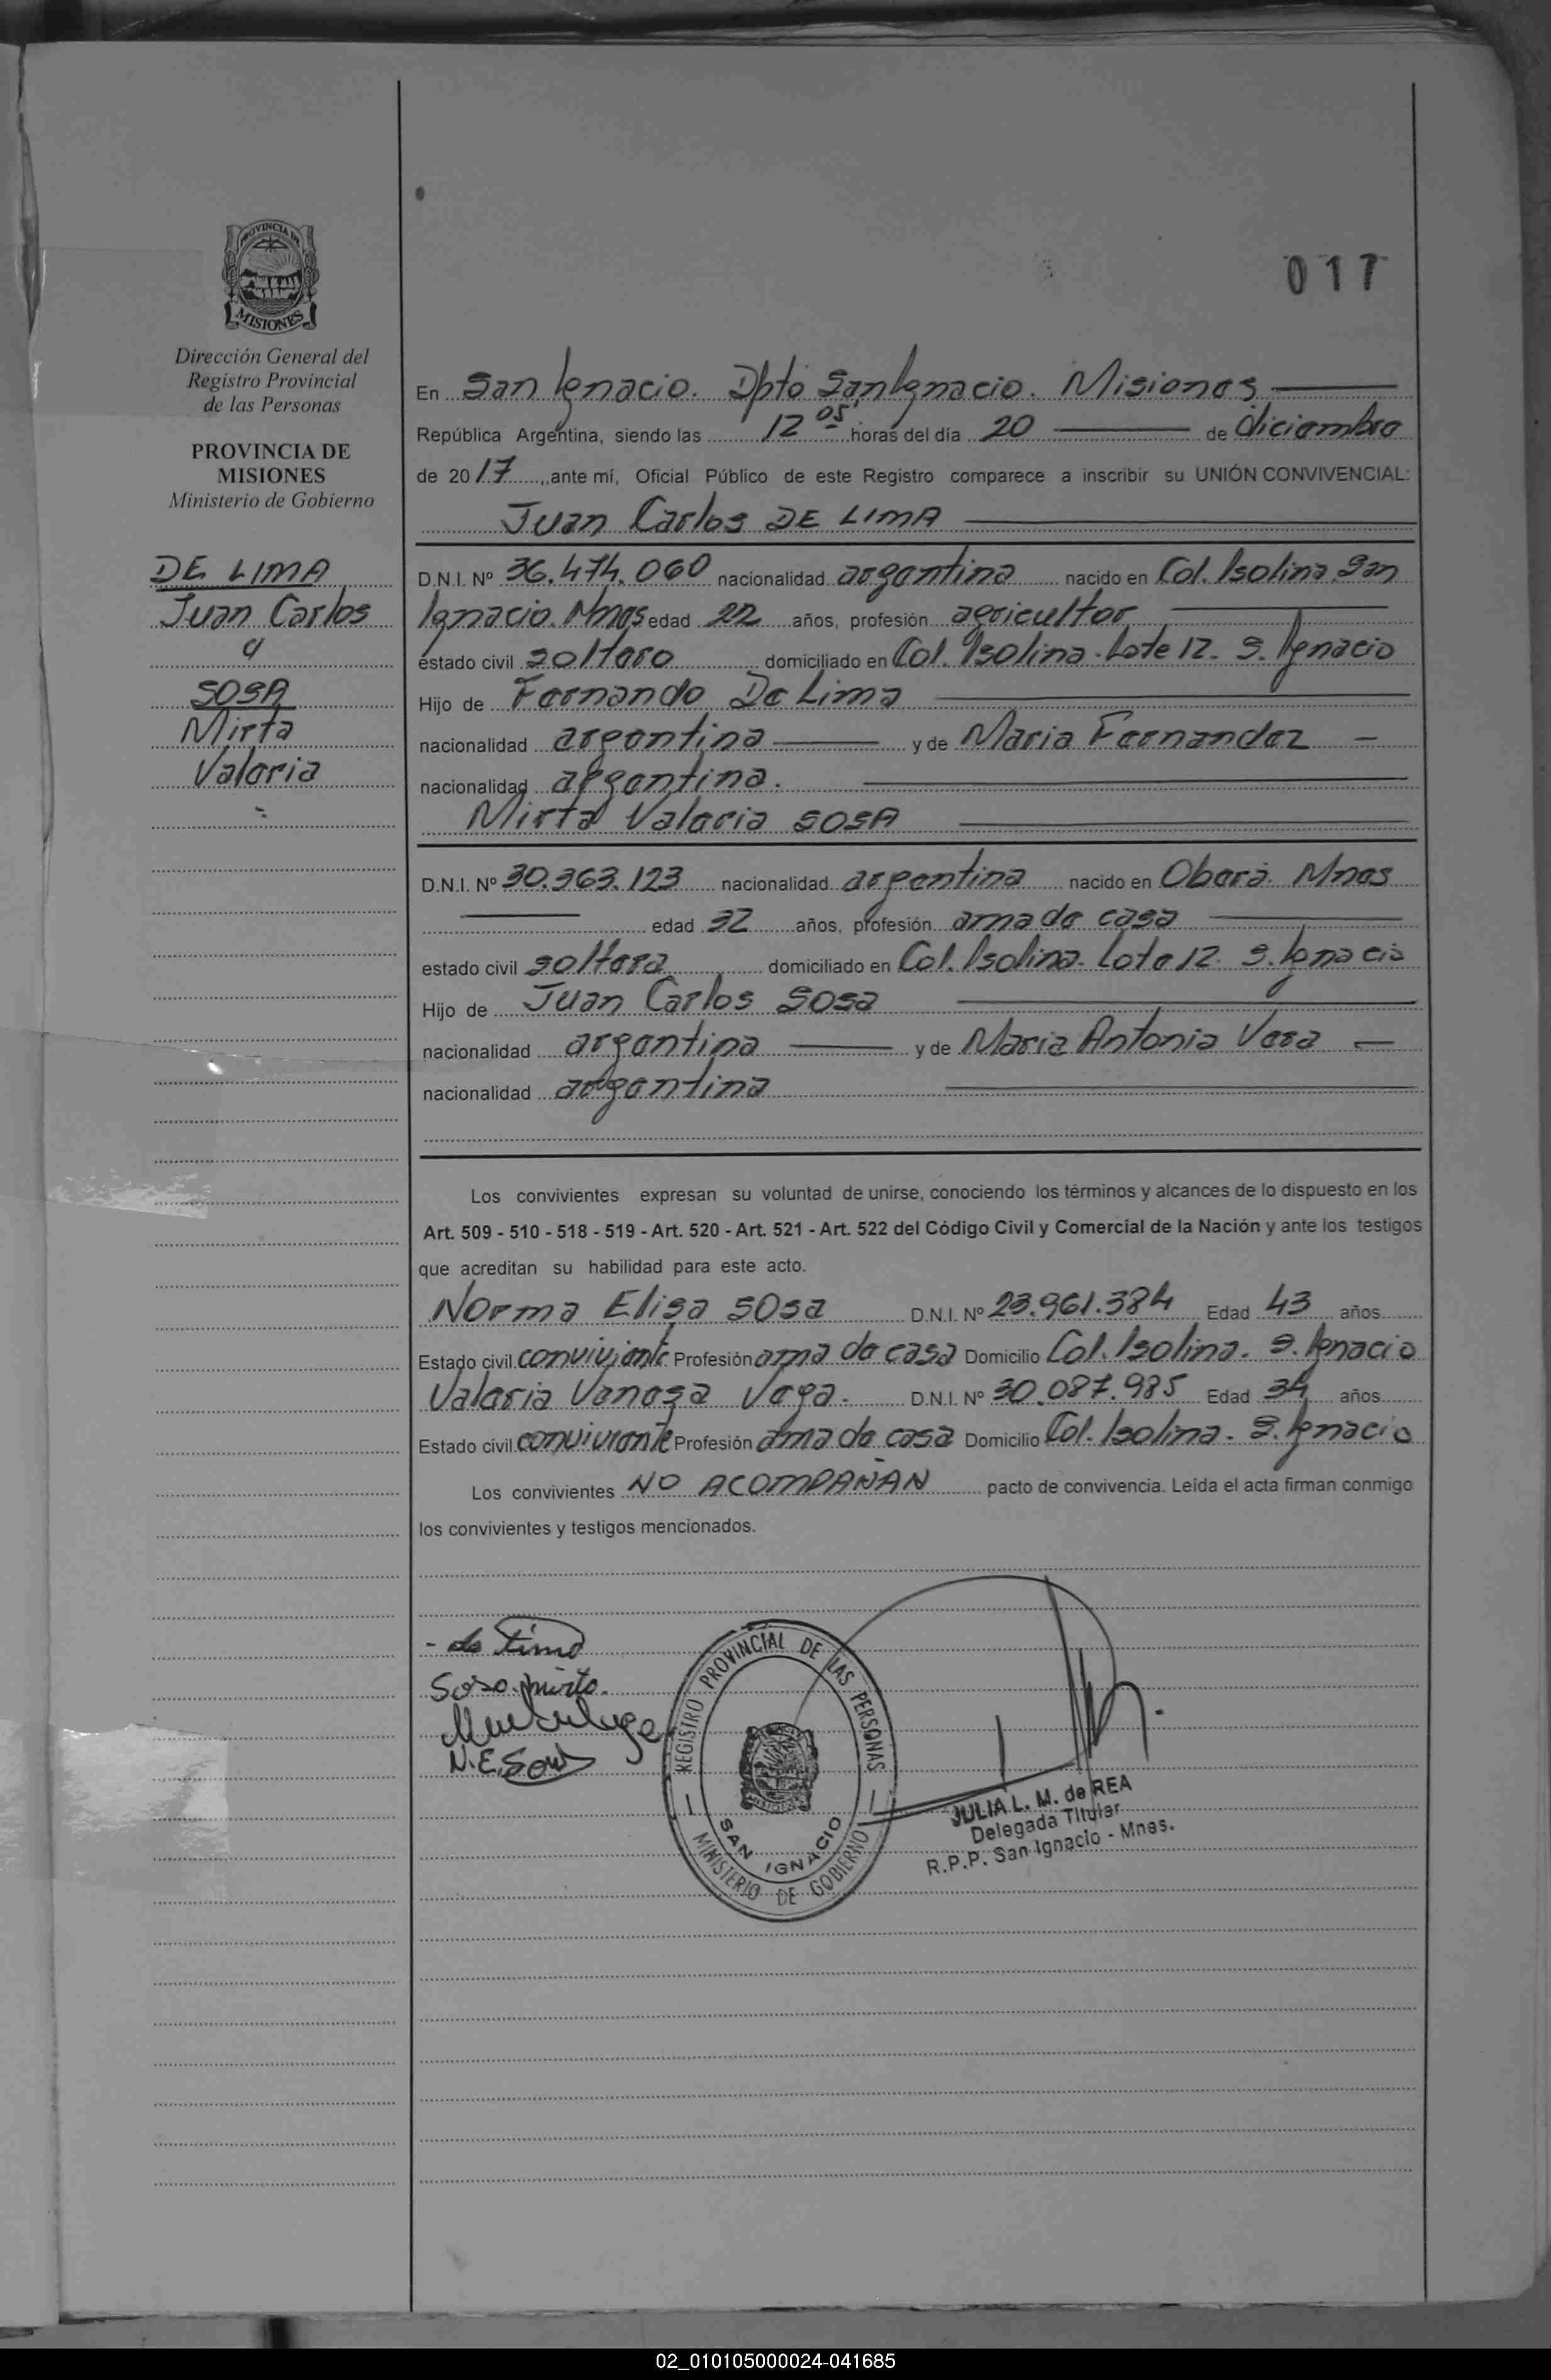 017
PROVINCIA DE
MISIONES
Dirección General del
Registro Provincial
de las Personas
PROVINCIA DE
MISIONES
Ministerio de Gobierno
DE LIMA
Juan Carlos
y
SOSA
Mirta
Valeria
En San Ignacio. Dpto San Ignacio. Misiones
República Argentina, siendo las 12 05 horas del día 20 de diciembre
de 2017, ante mí, Oficial Público de este Registro comparece a inscribir su UNIÓN CONVIVENCIAL:
Juan Carlos DE LIMA
D.N.I. Nº 36.474.060 nacionalidad argentina nacido en Col. Isolina San
Ignacio. Mnes edad 22 años, profesión agricultor
estado civil soltero domiciliado en Col. Isolina. Lote 12. S. Ignacio
Hijo de Fernando De Lima
nacionalidad argentina y de Maria Fernandez
nacionalidad argentina.
Mirta Valeria SOSA
D.N.I. Nº 30.363.123 nacionalidad argentina nacido en Oberá. Mnes
edad 32 años, profesión ama de casa
estado civil soltera domiciliado en Col. Isolina. Lote 12. S. Ignacio
Hijo de Juan Carlos Sosa
nacionalidad argentina y de Maria Antonia Vera
nacionalidad argentina
Los convivientes expresan su voluntad de unirse, conociendo los términos y alcances de lo dispuesto en los
Art. 509 - 510 - 518 - 519 - Art. 520 - Art. 521 - Art. 522 del Código Civil y Comercial de la Nación y ante los testigos
que acreditan su habilidad para este acto.
Norma Elisa Sosa D.N.I. Nº 23.961.384 Edad 43 años
Estado civil conviviente Profesión ama de casa Domicilio Col. Isolina. S. Ignacio
Valeria Vanesa Vega. D.N.I. Nº 30.087.985 Edad 34 años
Estado civil conviviente Profesión ama de casa Domicilio Col. Isolina. S. Ignacio
Los convivientes NO ACOMPAÑAN pacto de convivencia. Leída el acta firman conmigo
los convivientes y testigos mencionados.
- de Lima
Sosa mirta.
N.E. Sosa
REGISTRO PROVINCIAL DE LAS PERSONAS
SAN IGNACIO
MINISTERIO DE GOBIERNO
JULIA L. M. de REA
Delegada Titular
R.P.P. San Ignacio - Mnes.
02_010105000024-041685